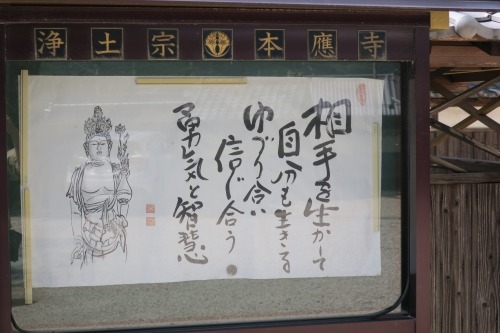 浄土宗 本應寺
相手を生かして
自分も生きる
ゆづり合い
信じ合う
勇気と智慧